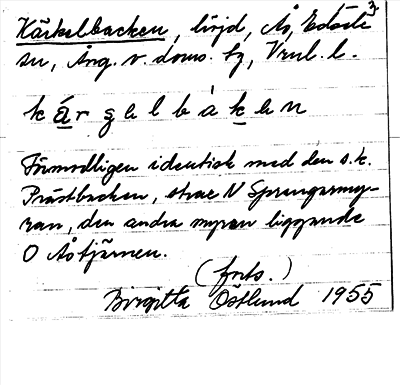 Kärkelbacken, höjd, Ås, Edsele 3
sn, Ång. v. doms. hg, Vnl. l.
k á r g e l b à k e n
Förmodligen identisk med den s.k.
Prästbacken, strax N Sprängarmy-
ran, den andra myran liggande
O Åstjärnen.
(forts.)
Birgitta Östlund 1955